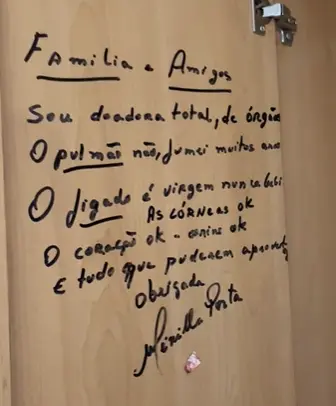 Familia e Amigos
Sou doadora total, de órgãos
O pulmão não, fumei muitos anos
O fígado é virgem nunca bebi
AS CÓRNEAS OK
O CORAÇÃO OK - OK
E tudo que puderem aproveitar
Obrigada